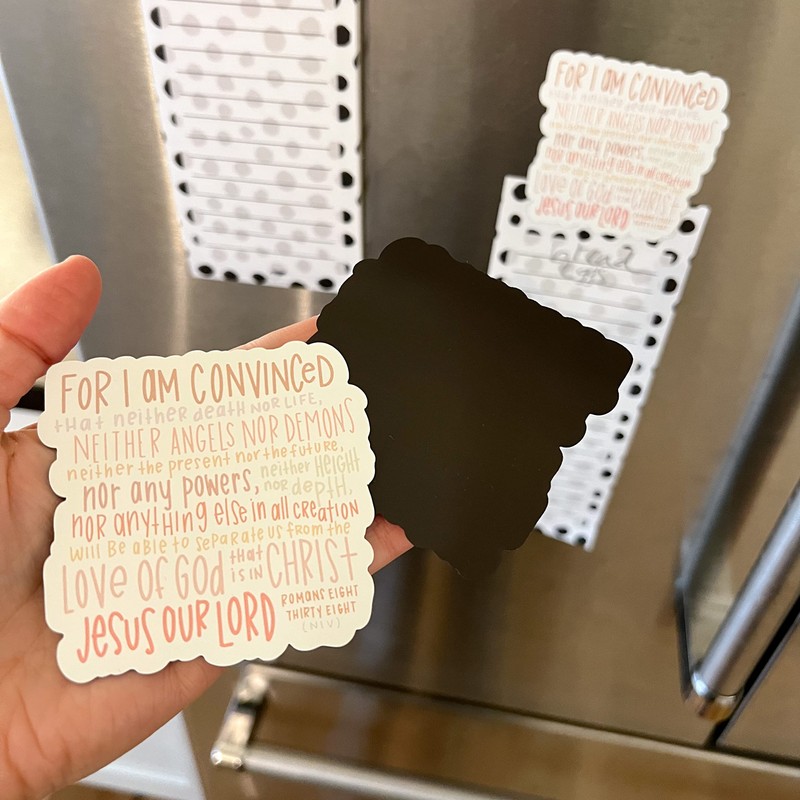 FOR I AM CONVINCED
that neither death NOR LIFE,
NEITHER ANGELS NOR DEMONS
neither the present nor the future,
nor any powers, neither HEIGHT
nor depth,
nor anything else in all creation
will Be able to separate us from the
LOVE OF GOD that is in CHRIST
JESUS OUR LORD
ROMANS EIGHT
THIRTY EIGHT
(NIV)
FOR I AM CONVINCED
NEITHER ANGELS NOR DEMONS
nor any powers,
nor anything else in all creation
LOVE OF GOD CHRIST
JESUS OUR LORD
bread
eggs